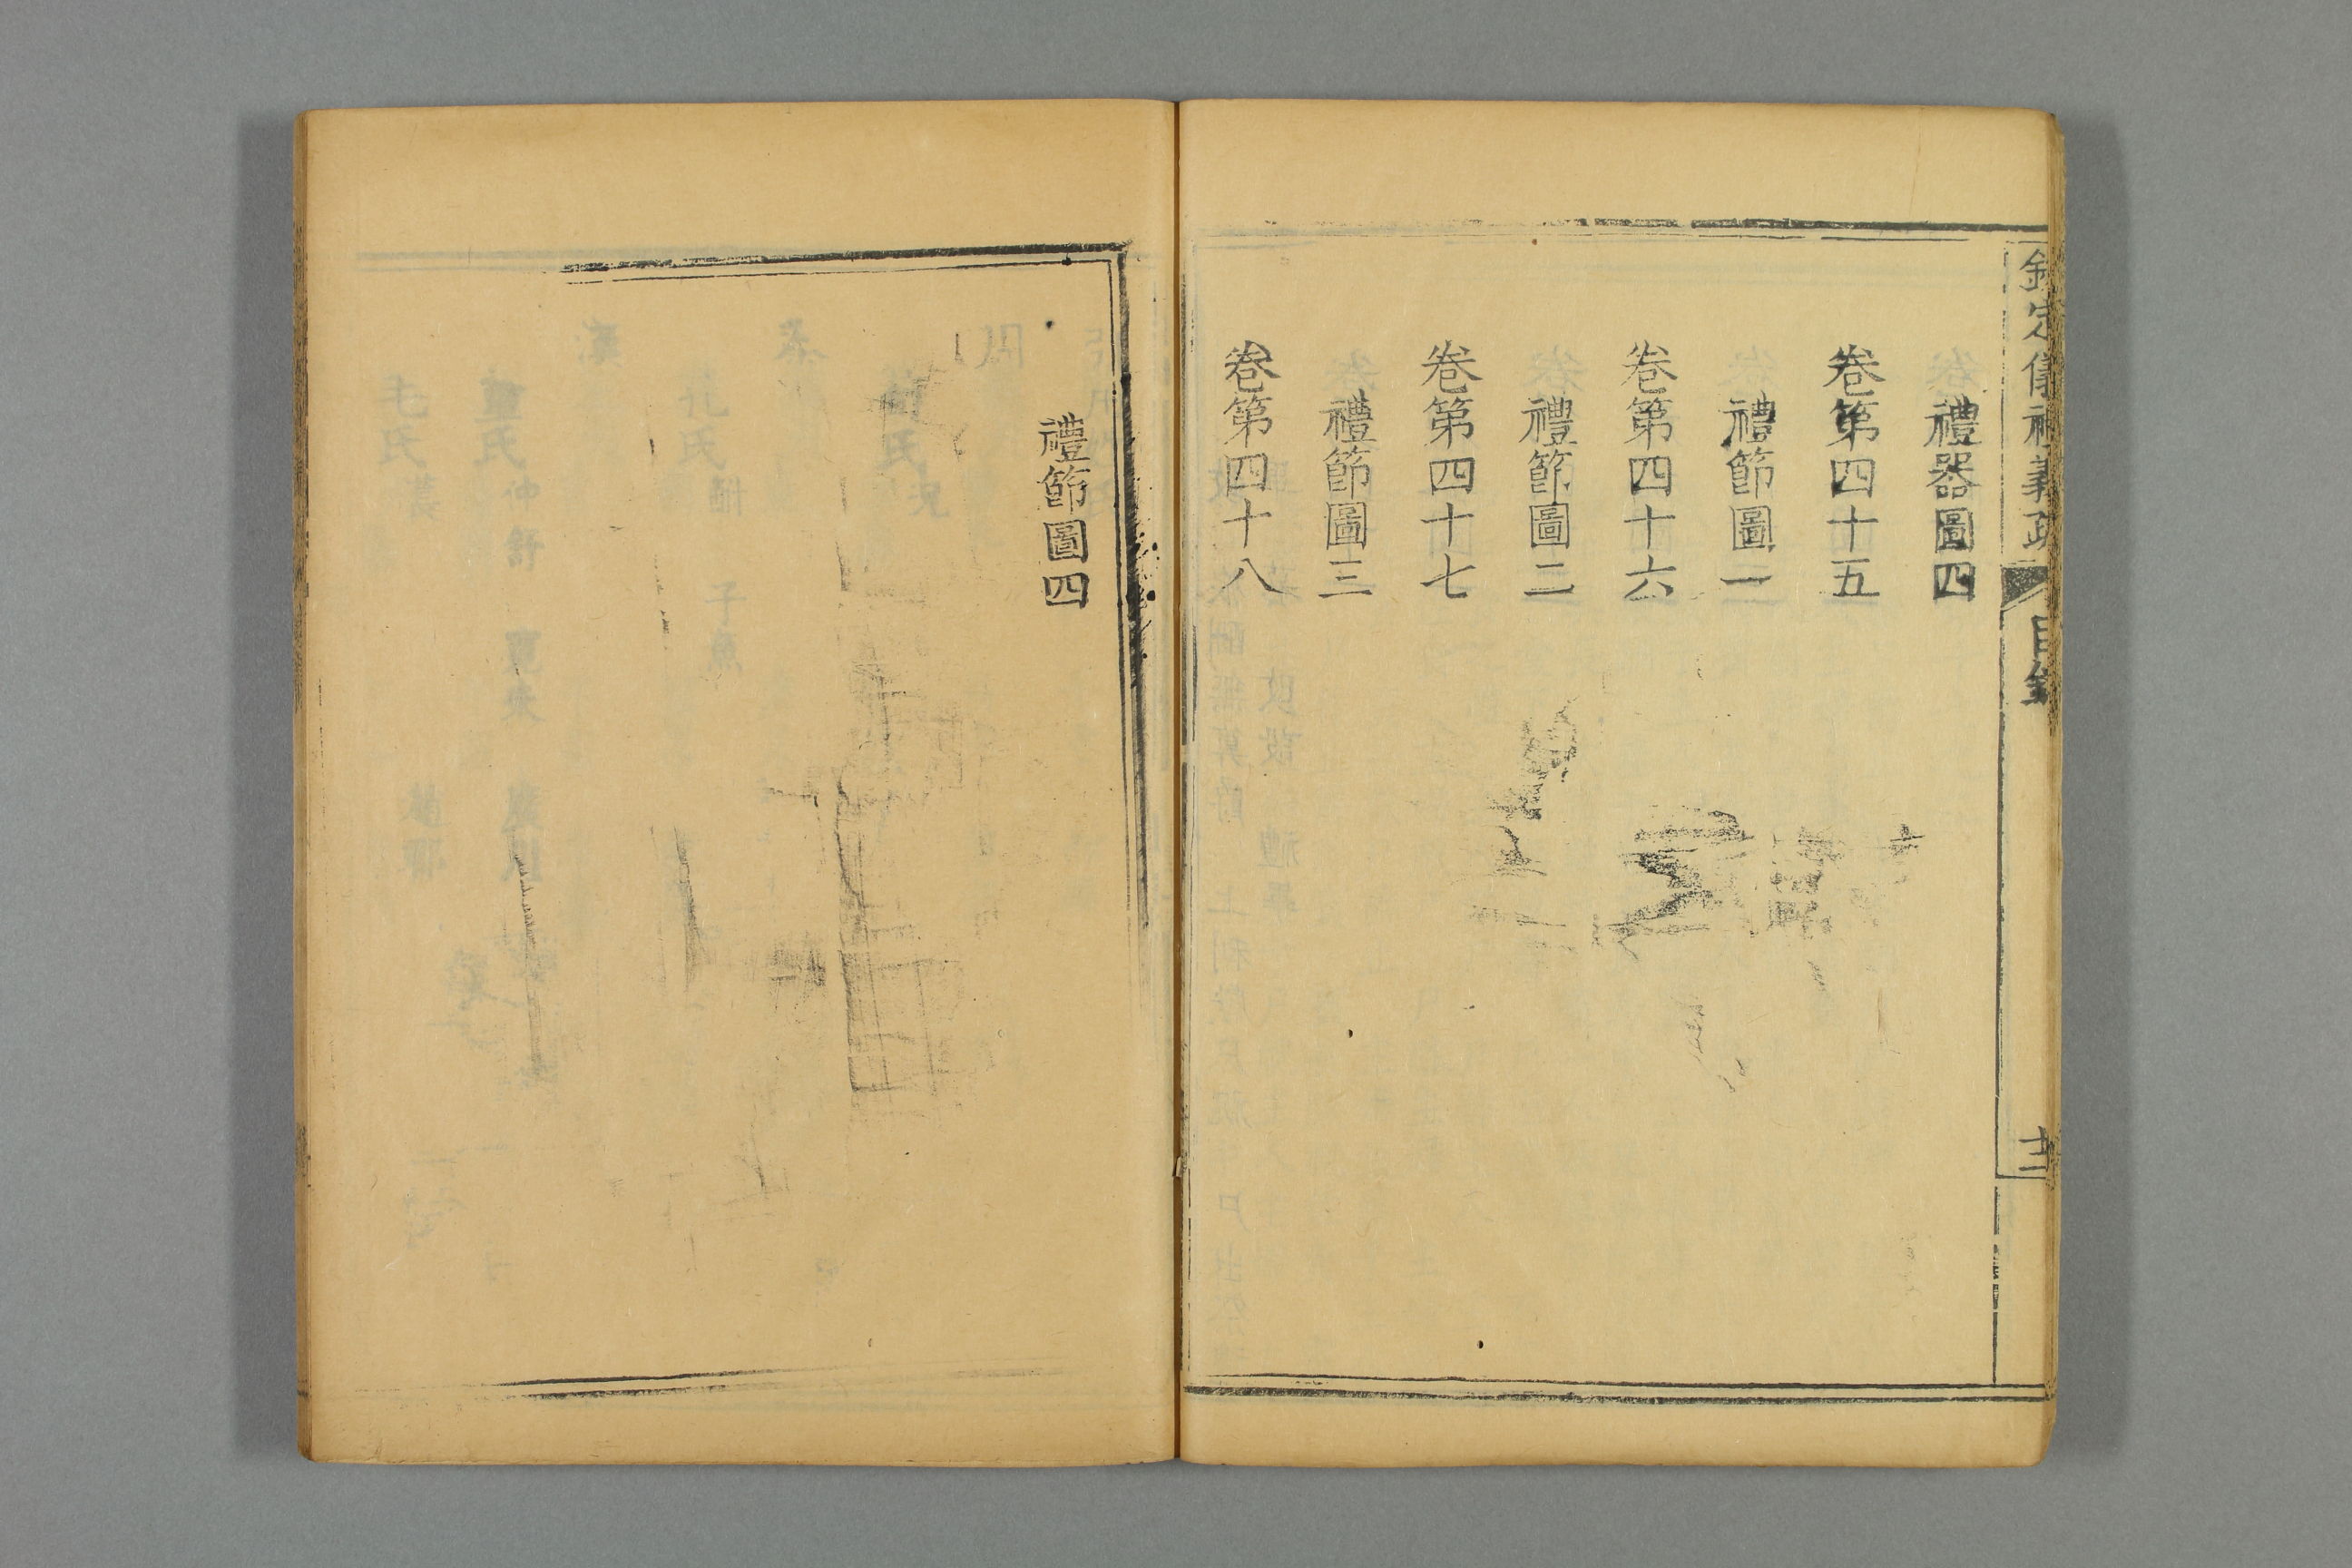 欽定儀禮義疏 目錄 十二
禮器圖四
卷第四十五
禮節圖一
卷第四十六
禮節圖二
卷第四十七
禮節圖三
卷第四十八
禮節圖四